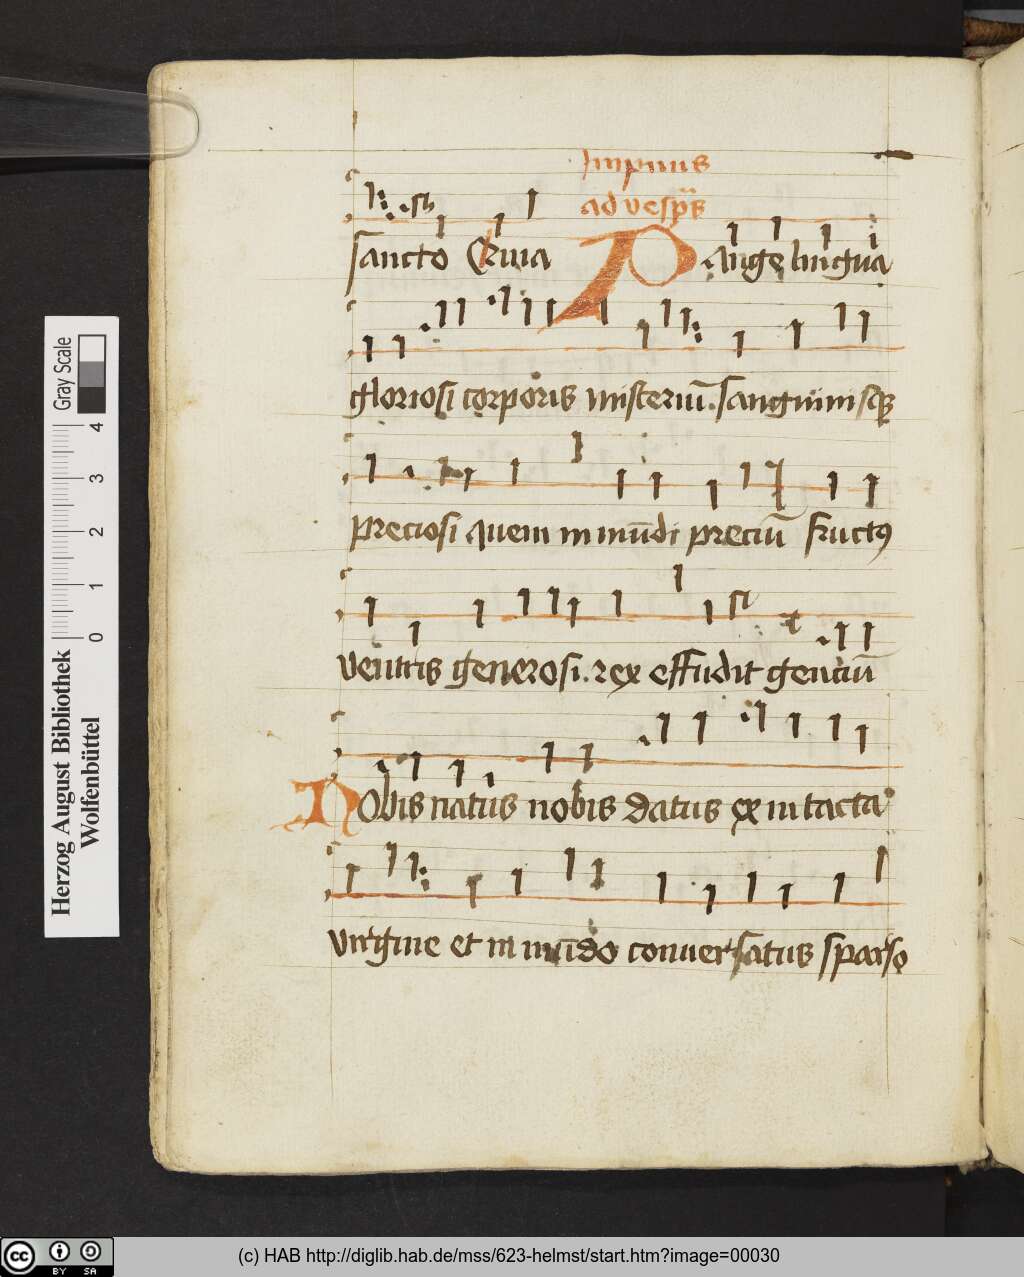 Impnus
ad vesp̄s
sancto Quia Pange lingua
gloriosi corporis misteriū. sanguinisqꝫ
preciosi quem in mūdi preciū fructꝰ
ventris generosi. rex effudit genciū
Nobis natus nobis datus ex intacta
virgine et in mūdo conuersatus sparso
Gray Scale
0 1 2 3 4
Herzog August Bibliothek
Wolfenbüttel
cc BY SA
(c) HAB http://diglib.hab.de/mss/623-helmst/start.htm?image=00030